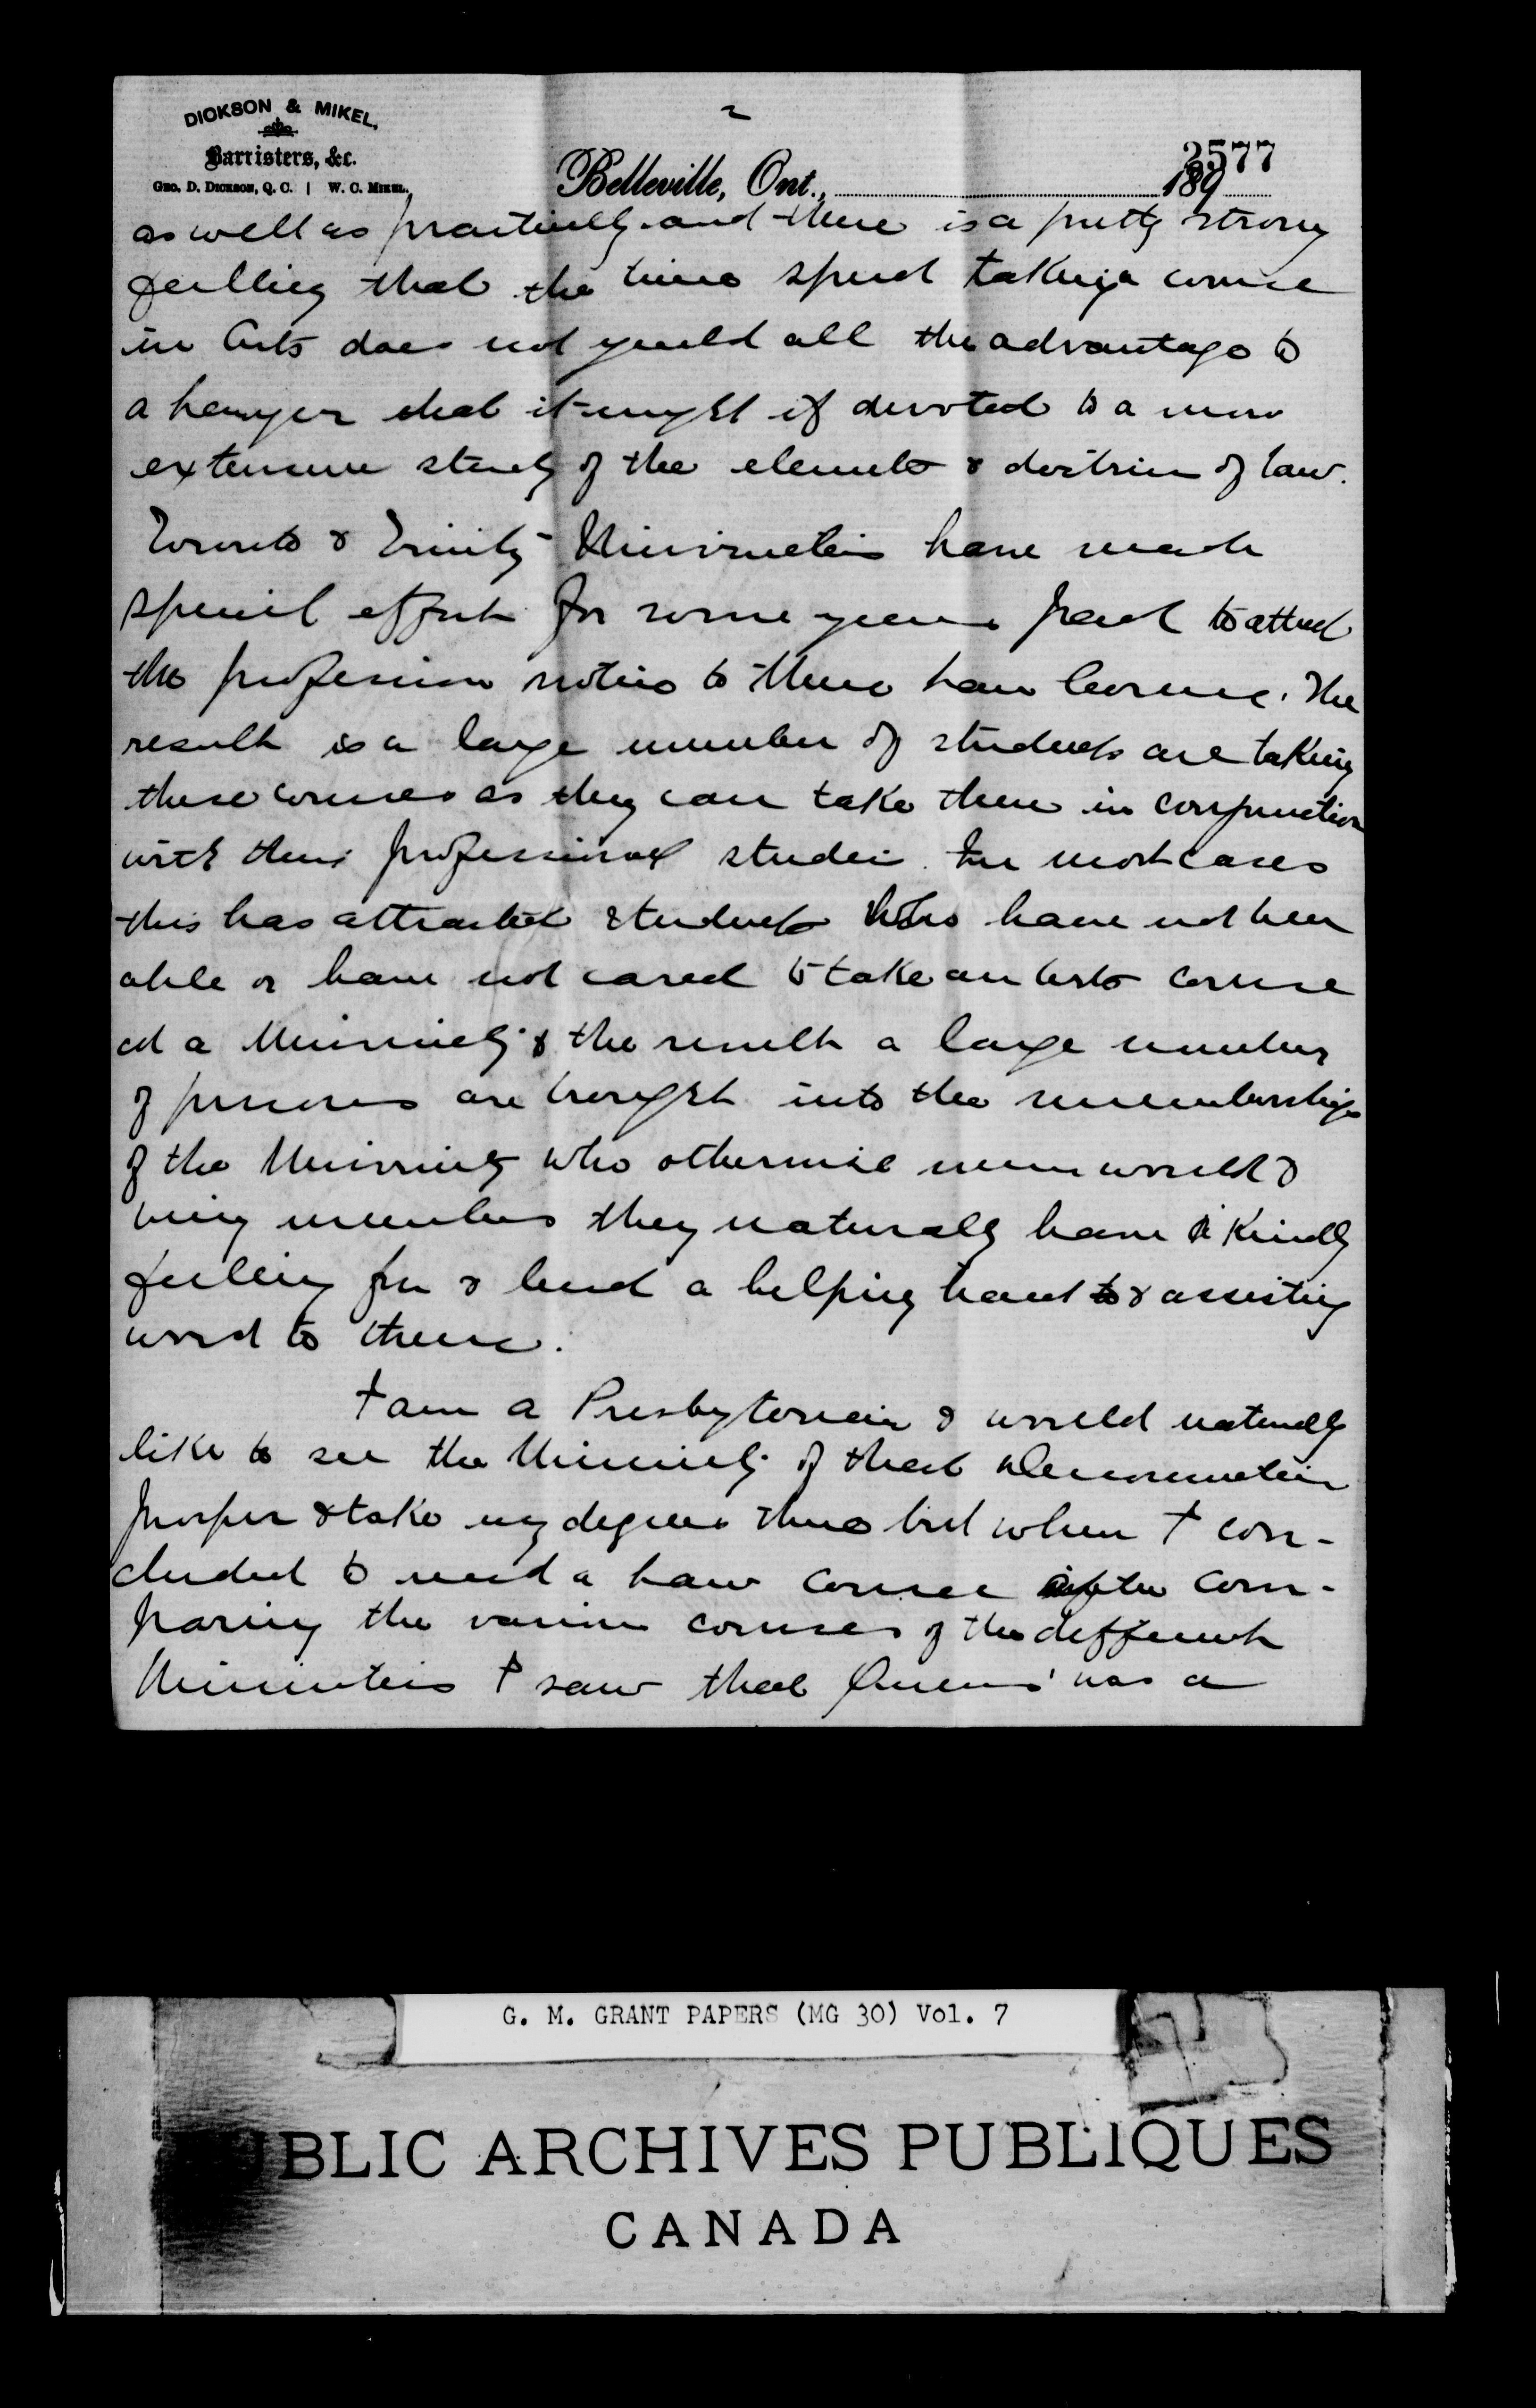 2
DICKSON & MIKEL,
Barristers, &c.
GEO. D. DICKSON, Q. C. | W. C. MIKEL.
2577
Belleville, Ont., 189
as well as practically and there is a pretty strong
feelling that the time spent taking a course
in Arts does not yeild all the advantage to
a Lawyer that it might if devoted to a more
extensive study of the elements & doctrine of law.
Toronto & Trinity Universities have made
special effort for some years past to attract
the profession notice to there Law Course. The
result is a large number of students are taking
these courses as they can take them in conjunction
with their professional studies. In most cases
this has attracted students who have not been
able or have not cared to take an Arts course
at a University & the result a large number
of persons are brought into the membership
of the University who otherwise never would &
being members they naturally have a kindly
feeling for & lend a helping hand to & assisting
word to them.
I am a Presbyterian & would naturally
like to see the University of that Denomination
prosper & take my degree there but when I con-
cluded to read a Law course after com-
paring the various courses of the different
Universities I saw that Queens' was a
G. M. GRANT PAPERS (MG 30) Vol. 7
PUBLIC ARCHIVES PUBLIQUES
CANADA